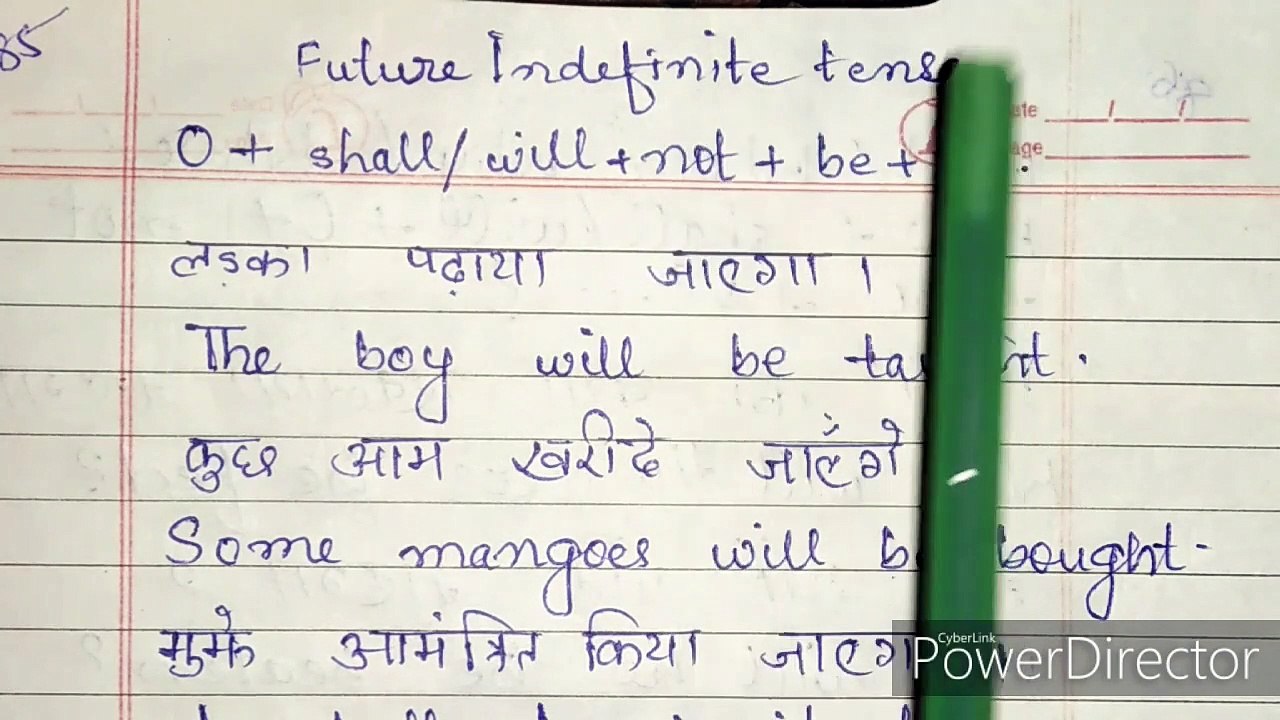 85
Future Indefinite tens
O + shall/will + not + be +
ate
age
लड़का पढ़ाया जाएगा ।
The boy will be ta
कुछ आम खरीदे जाएंगे
Some mangoes will b bought.
मुझे आमंत्रित किया जाएग
CyberLink
PowerDirector